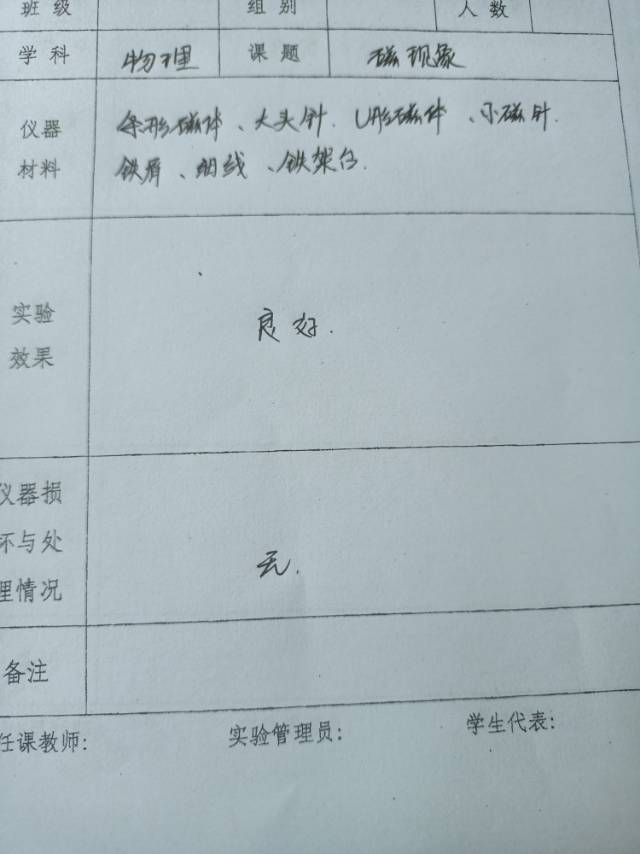 班级 组别 人数
学科 物理 课题 磁现象
仪器 条形磁体、大头针.U形磁体、小磁针.
材料 铁屑、细线、铁架台.
实验
效果 良好.
仪器损
坏与处
理情况 无.
备注
任课教师: 实验管理员: 学生代表: